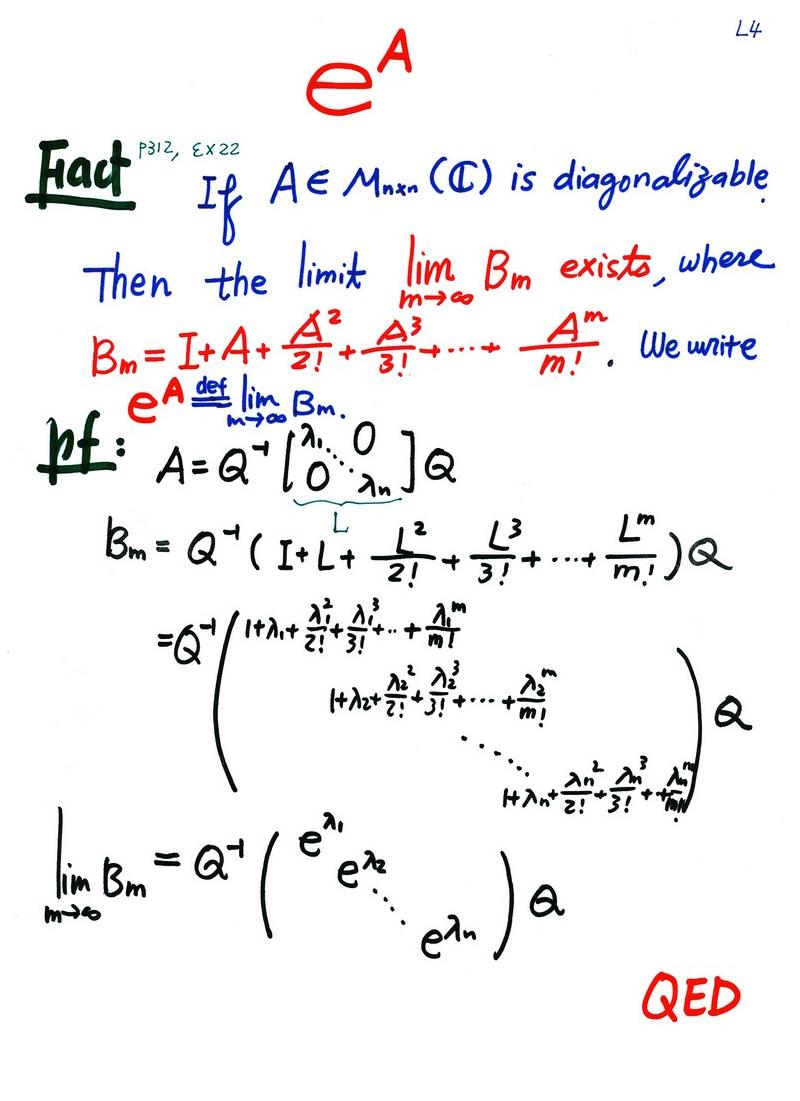 L4
e^A
Fact P312, EX22
If A ∈ M_{n×n}(ℂ) is diagonalizable.
Then the limit lim_{m→∞} B_m exists, where
B_m = I + A + A^2/2! + A^3/3! + ⋯ + A^m/m! . We write
e^A def= lim_{m→∞} B_m.
pf: A = Q^{-1} [λ_1 ⋱ λ_n, 0, 0] Q
L
B_m = Q^{-1} ( I + L + L^2/2! + L^3/3! + ⋯ + L^m/m! ) Q
= Q^{-1} ( 1+λ_1+λ_1^2/2!+λ_1^3/3!+⋯+λ_1^m/m!
1+λ_2+λ_2^2/2!+λ_2^3/3!+⋯+λ_2^m/m!
⋱
1+λ_n+λ_n^2/2!+λ_n^3/3!++λ_n^m/m! ) Q
lim_{m→∞} B_m = Q^{-1} ( e^{λ_1} e^{λ_2} ⋱ e^{λ_n} ) Q
QED